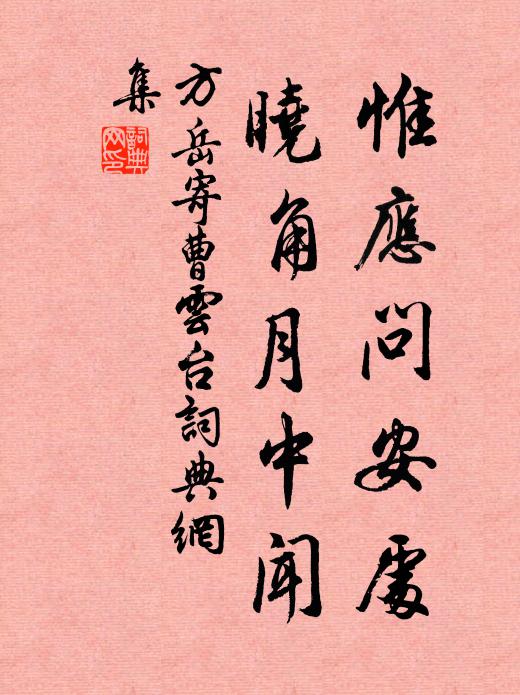 惟應問安處
曉角月中聞
方岳寄曹雲台詞典網
集
詞典網印